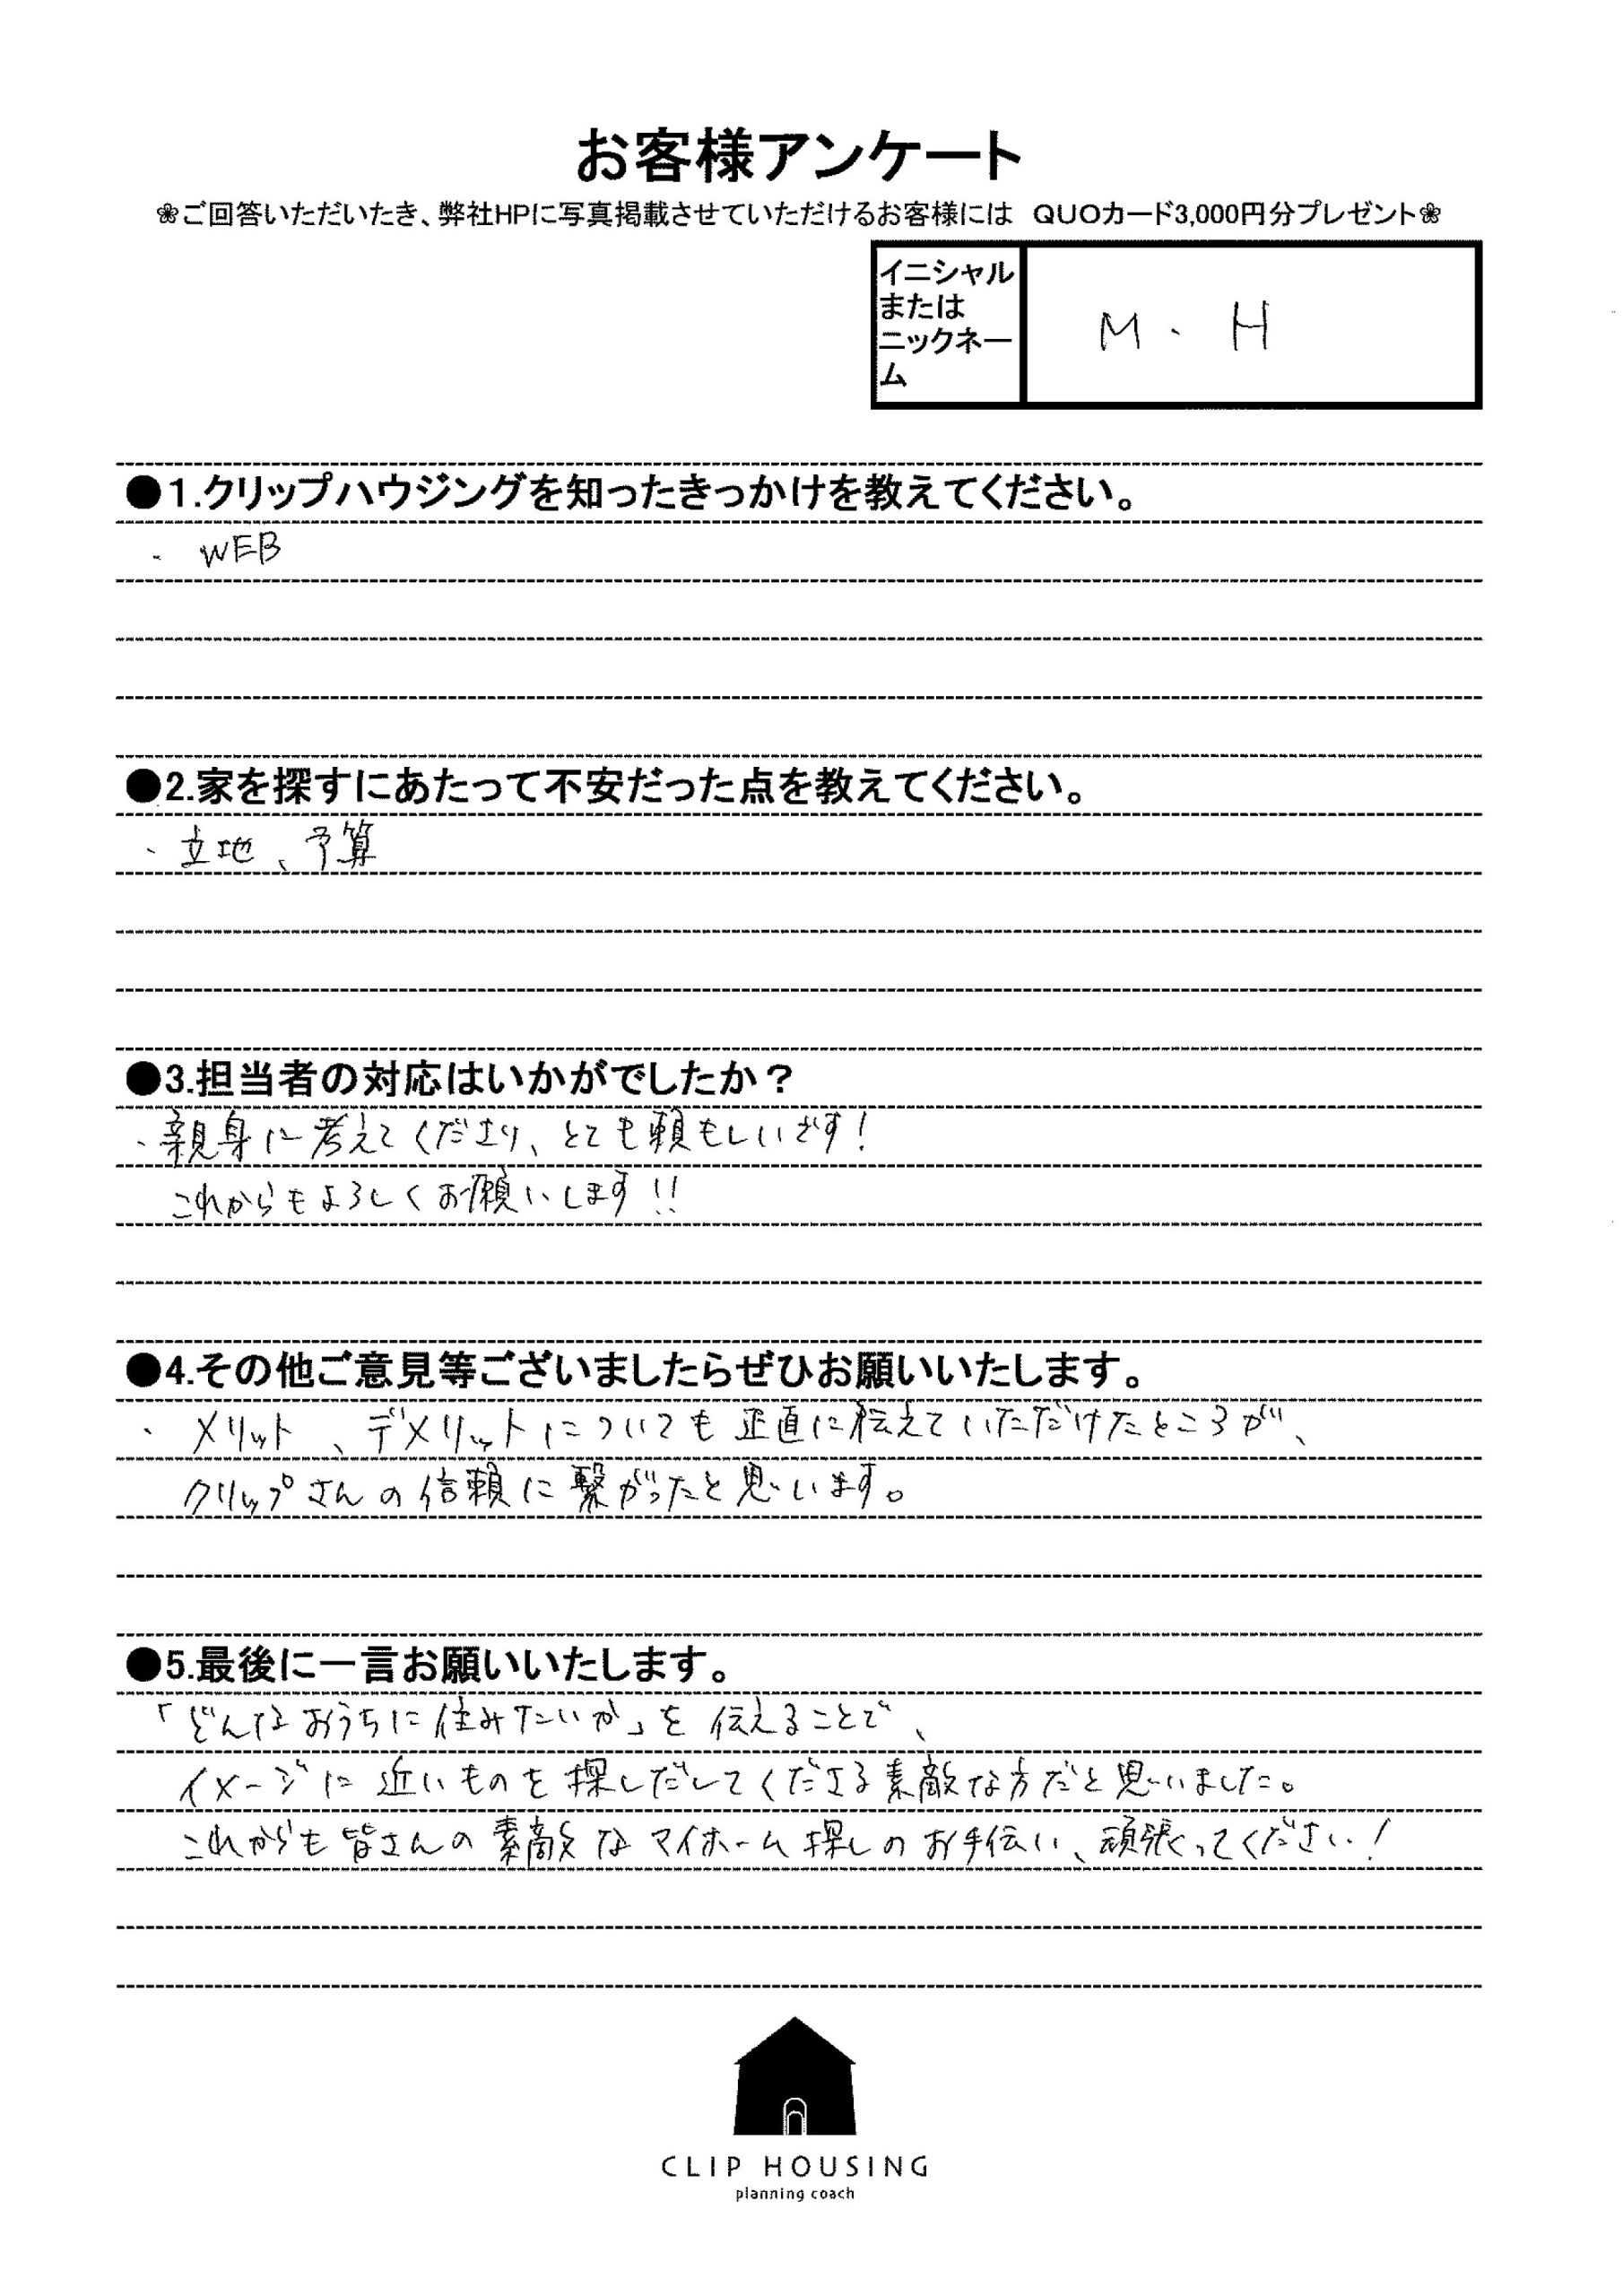 お客様アンケート
❀ご回答いただいたき、弊社HPに写真掲載させていただけるお客様には　QUOカード3,000円分プレゼント❀
イニシャル
または
ニックネー
ム
M . H
●1.クリップハウジングを知ったきっかけを教えてください。
・ WEB
●2.家を探すにあたって不安だった点を教えてください。
・立地、予算
●3.担当者の対応はいかがでしたか？
・親身に考えてくださり、とても頼もしいです！
これからもよろしくお願いします!!
●4.その他ご意見等ございましたらぜひお願いいたします。
・メリット、デメリットについても正直に伝えていただけたところが、
クリップさんの信頼に繋がったと思います。
●5.最後に一言お願いいたします。
「どんなおうちに住みたいか」を伝えることで、
イメージに近いものを探しだしてくださる素敵な方だと思いました。
これからも皆さんの素敵なマイホーム探しのお手伝い、頑張ってください！
CLIP HOUSING
planning coach